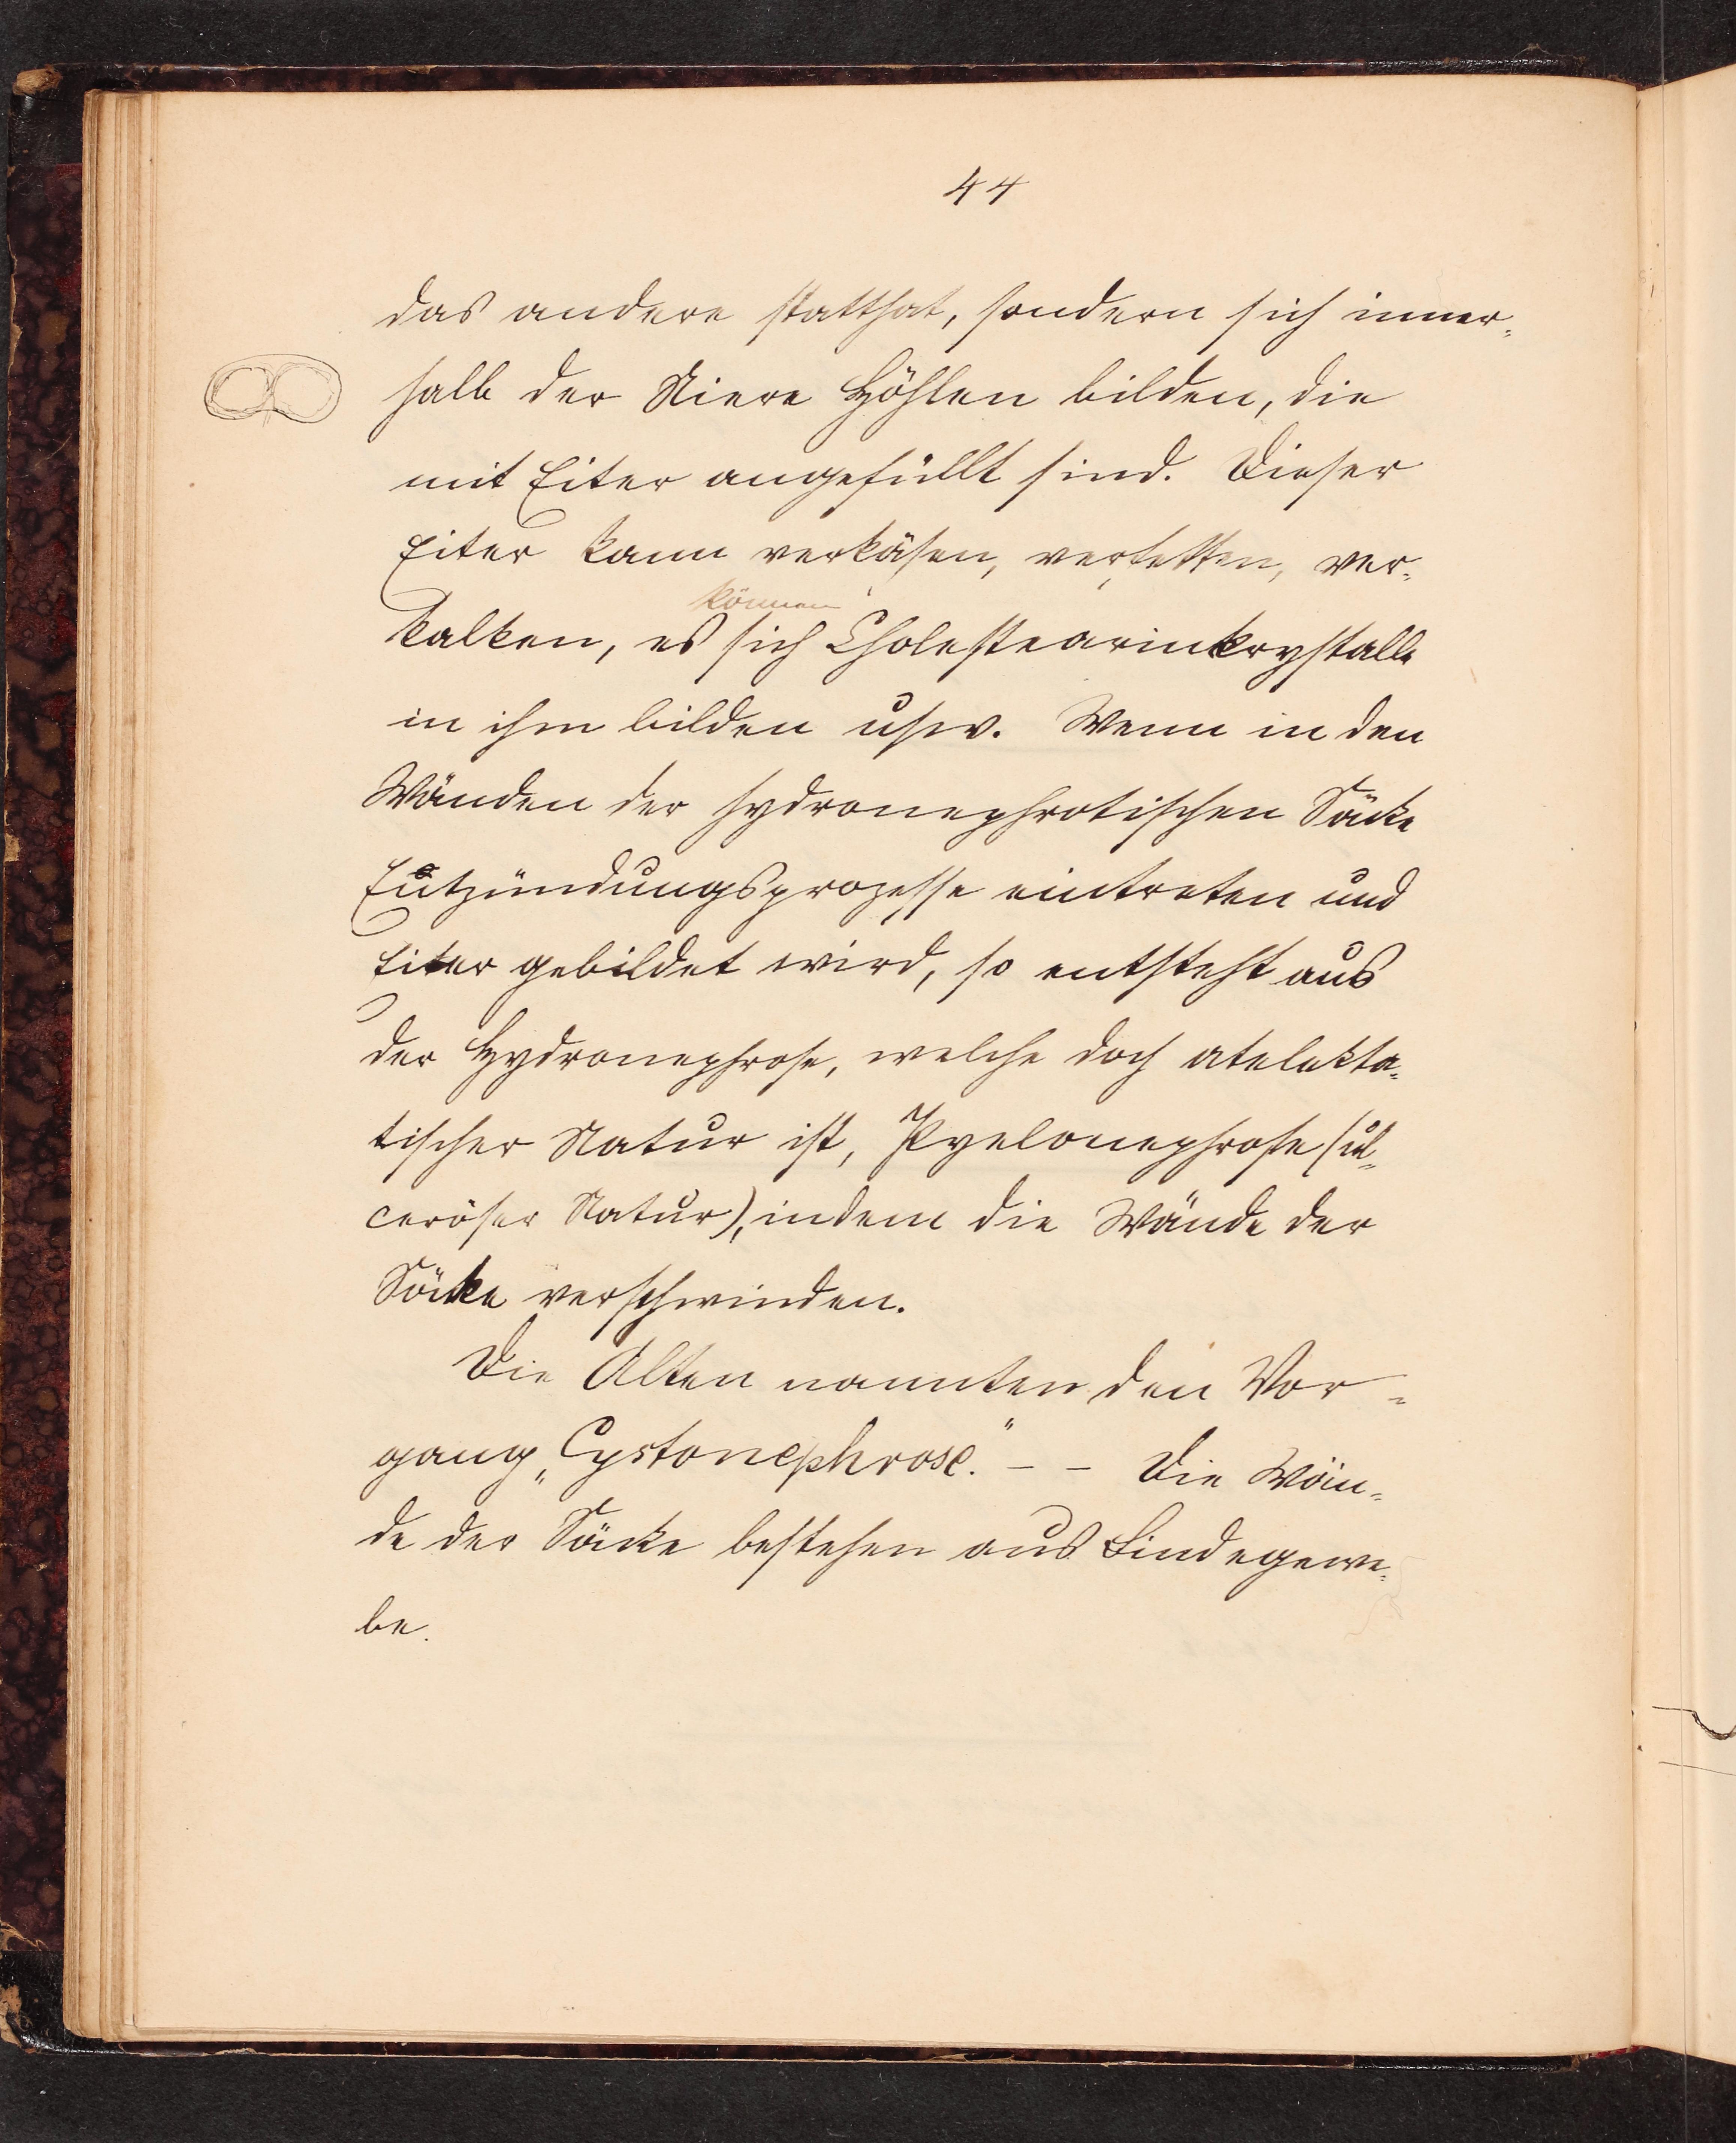 44
das andere statthat, sondern sich inner-
halb der Niere Höhlen bilden, die
mit Eiter angefüllt sind. Dieser
Eiter kann verkäsen, verfetten, ver-
können
kalken, es sich Cholestearinkrystalle
in ihm bilden usw. Wenn in den
Wänden der hydronephrotischen Säcke
Entzündungsprozesse eintreten und
Eiter gebildet wird, so entsteht aus
der Hydronephrose, welche doch atelekta-
tischer Natur ist, Pyelonephrose (ul-
ceröser Natur), indem die Wände der
Säcke verschwinden.
Die Alten nannten den Vor-
gang „Cystonephrose." – – Die Wän-
de der Säcke bestehen aus Bindegewe-
be.